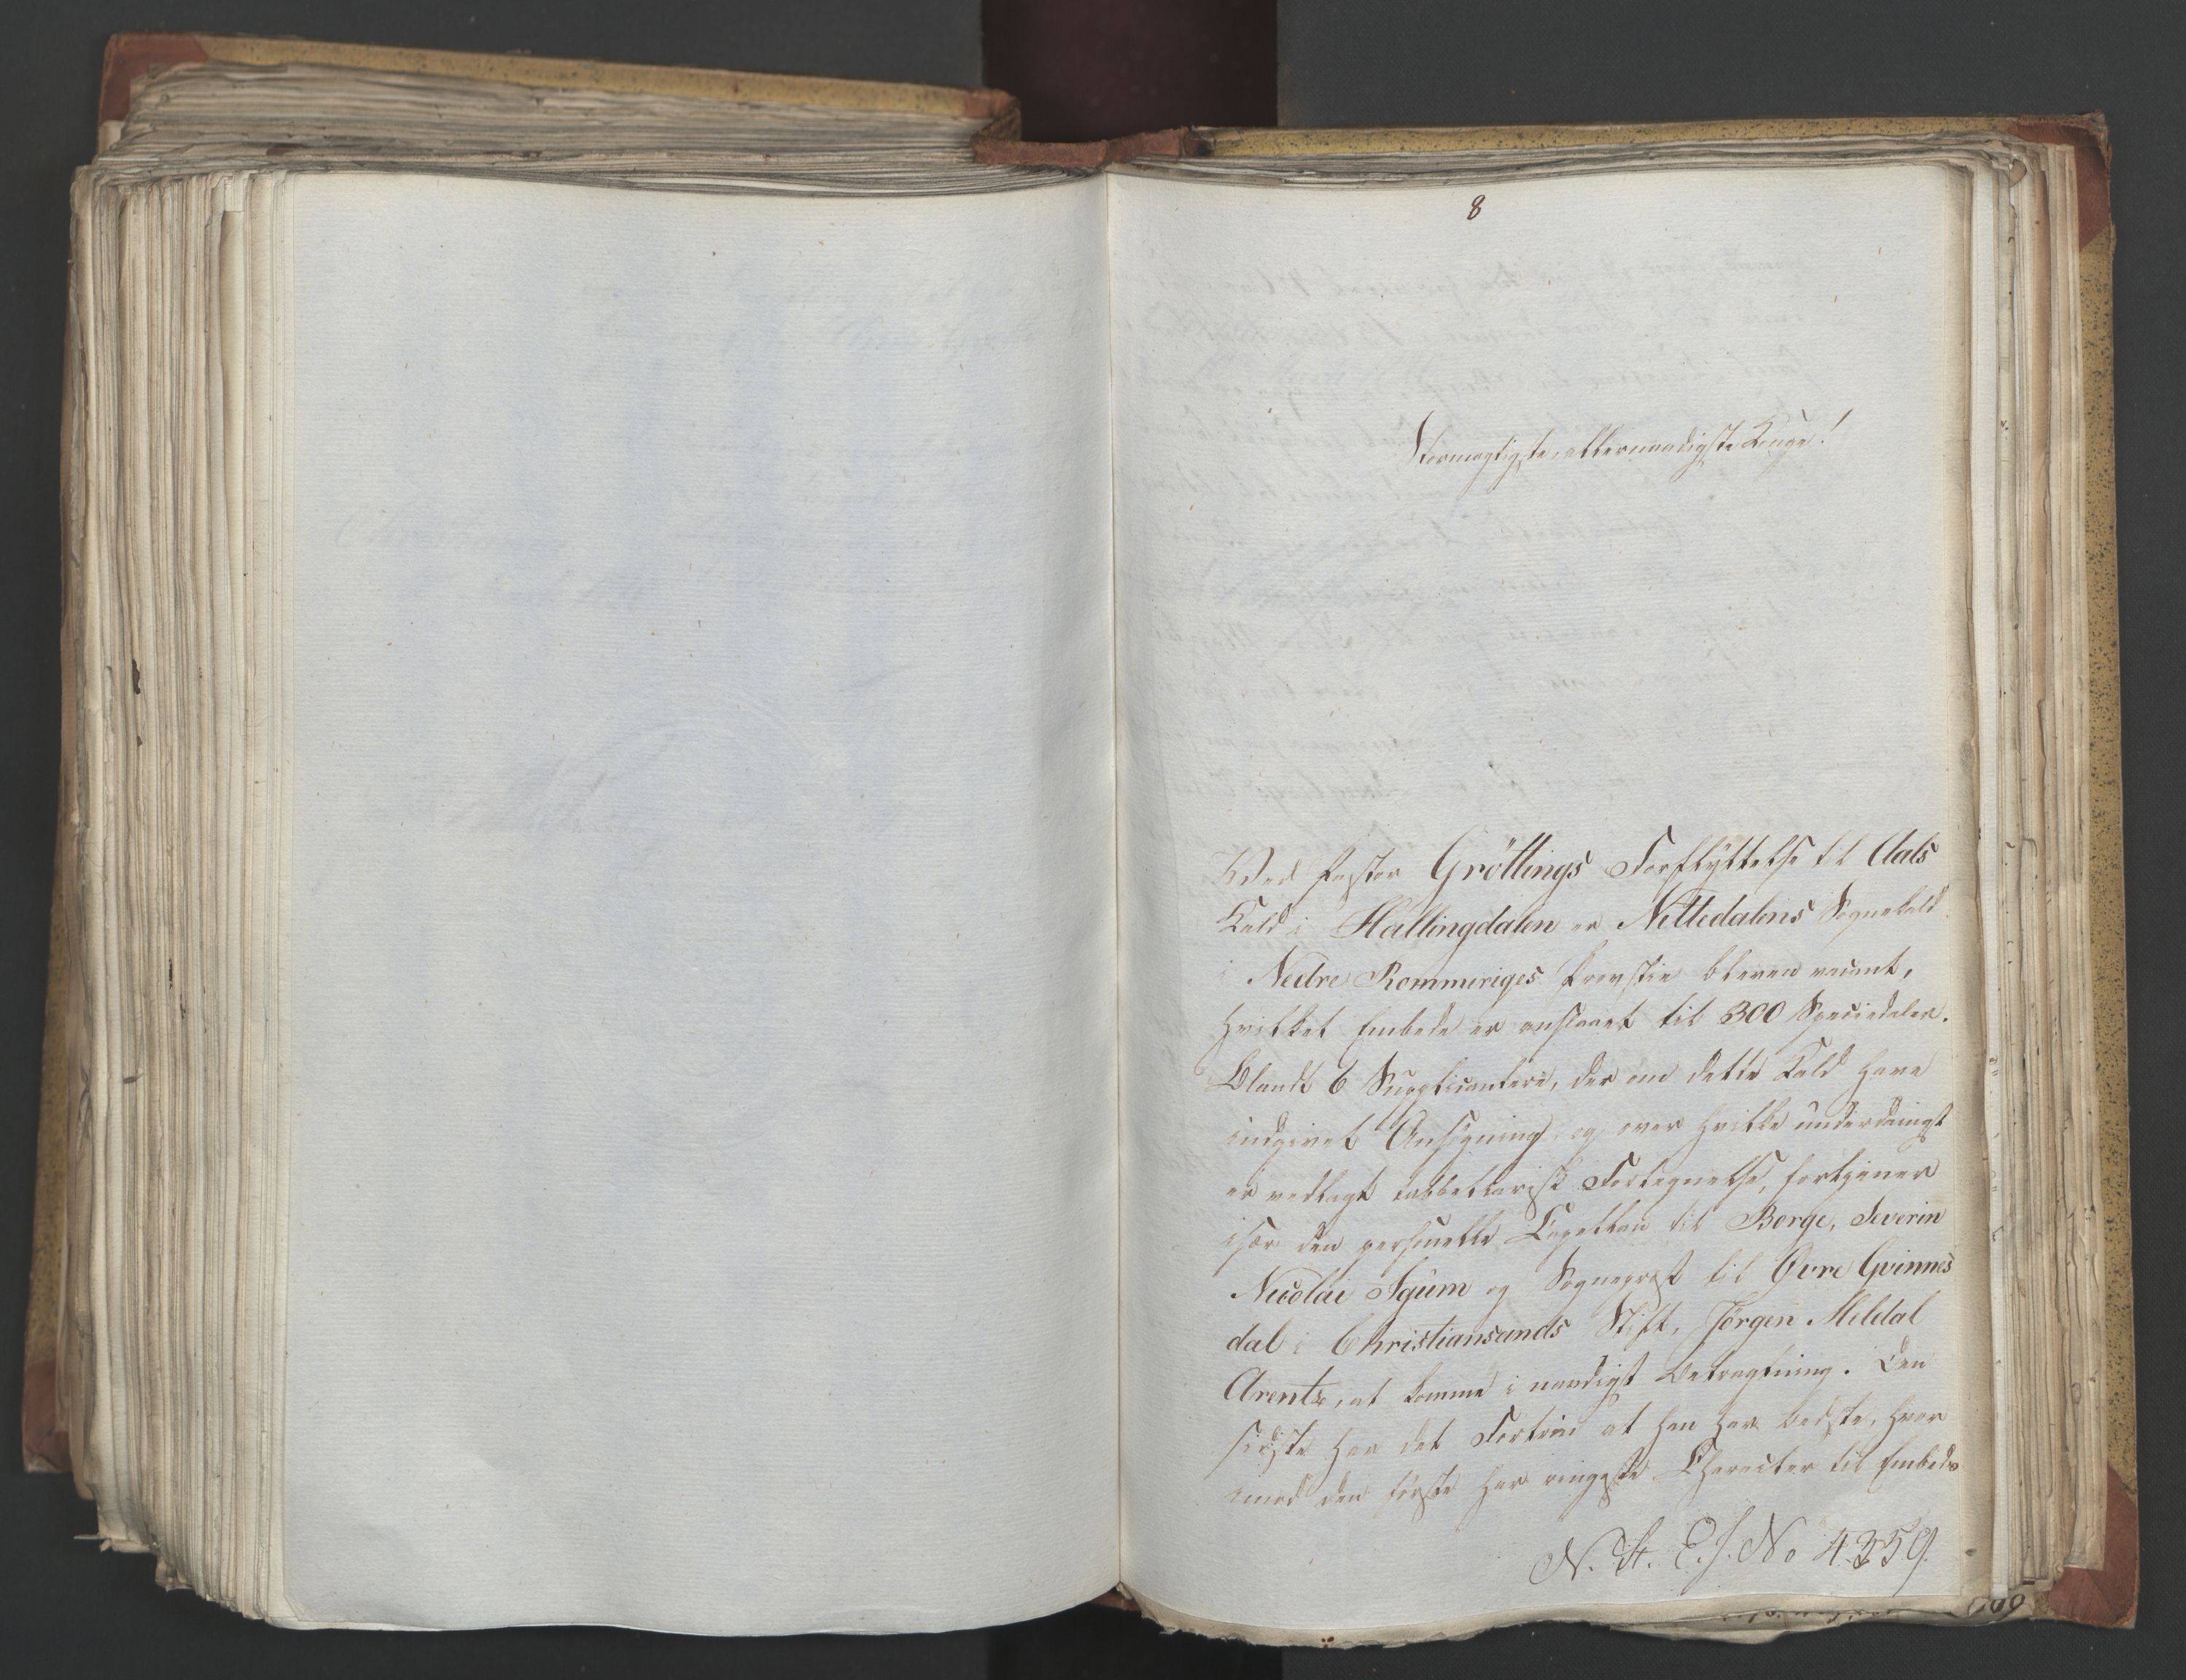 8
Stormægtigste, allernaadigste Konge!
Ved Pastor Gröttings Forflyttelse til Aals
Kald i Hallingdalen er Nittedalens Sognekald
i Nedre Rommeriges Provstie bleven vacant,
hvilket Embede er anslaaet til 300 Speciedaler.
Blandt 6 Supplicantere, der om dette Kald have
indgivet Ansøgning og over hvilke underdanigst
er vedlagt tabbellarisk Fortegnelse, fortjener
især den personelle Capellan til Borge, Severin
Nicolai Agum og Sogneprest til Qvre Qvinnes
dal i Christiansands Stift, Jörgen Meldal
Arentz, at komme i naadigst Betragtning. Den
sidste har det Fortrin at han har bedste, hvor
imod den første har ringeste Character til Embeds
N. St. E. J. No 4359.